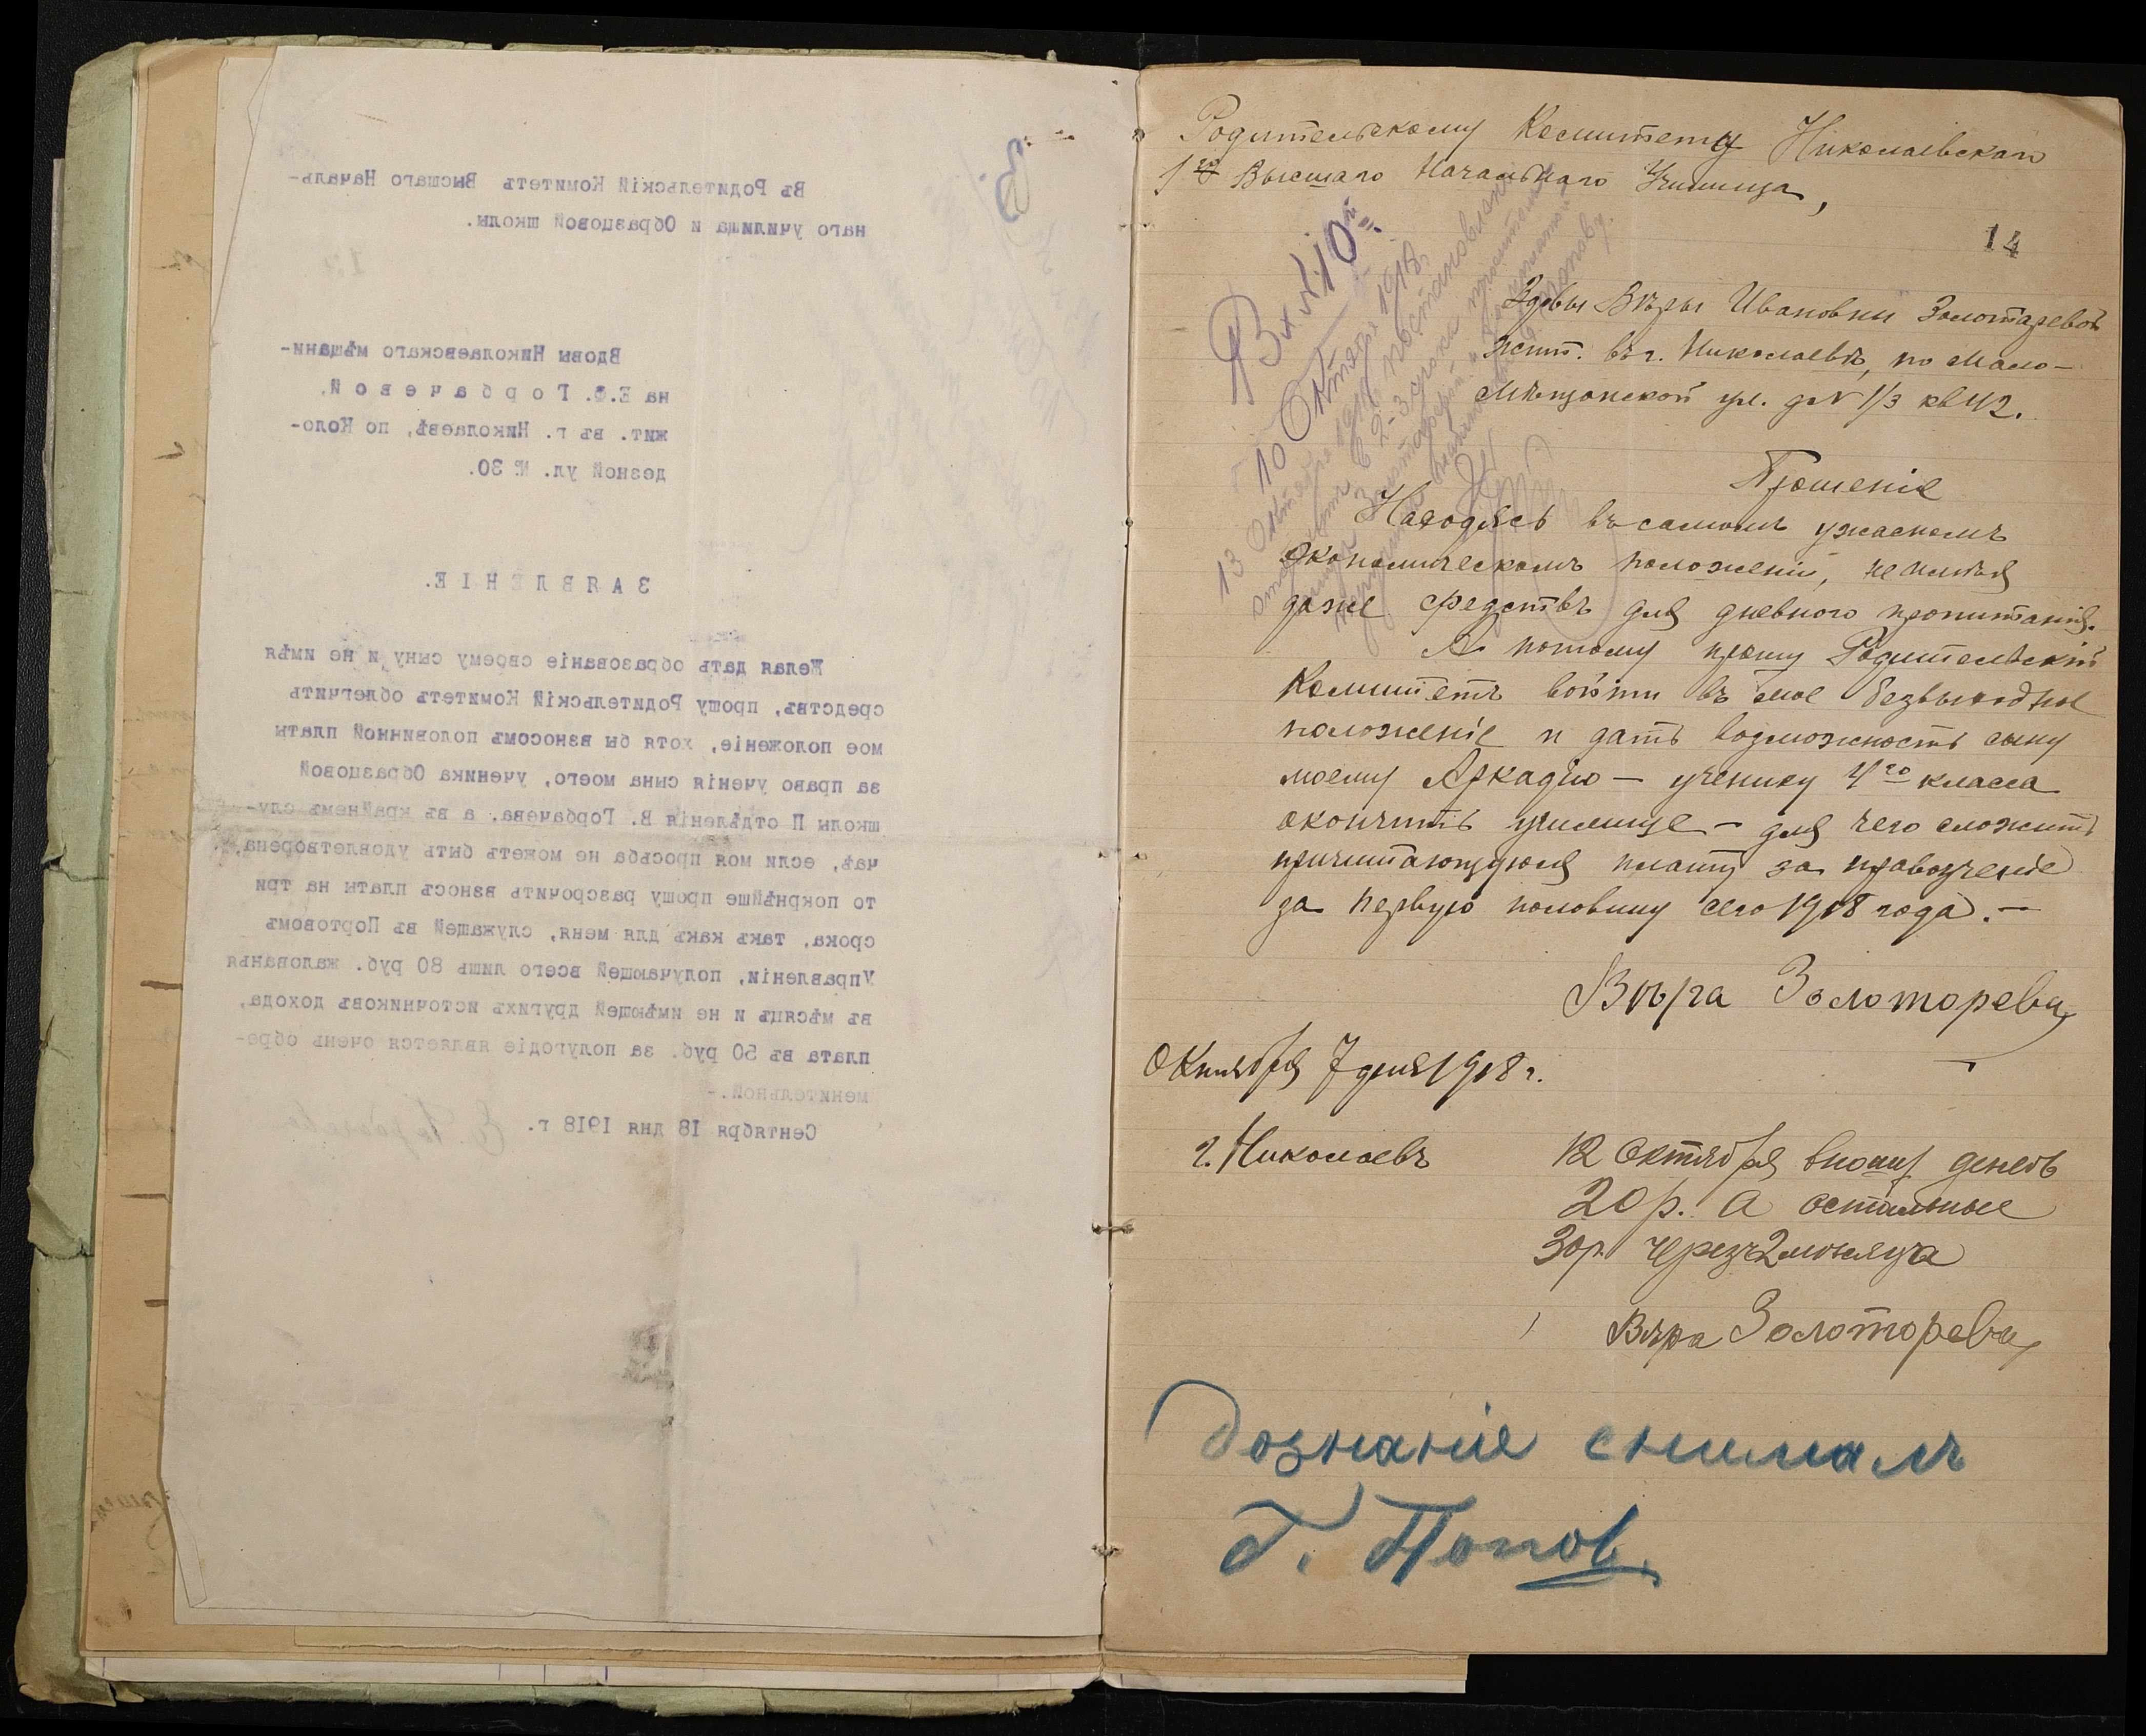 Въ Родительскій Комитетъ Высшаго Началь-
наго училища и Образцовой школы.
Вдовы Николаевскаго мѣщани-
на Е.Ф. Горбачевой,
жит. въ г. Николаевѣ, по Коло-
дезной ул. № 30.
ЗАЯВЛЕНІЕ.
Желая дать образованіе своему сыну и не имѣя
средствъ, прошу Родительскій Комитетъ облегчить
мое положеніе, хотя бы взносомъ половинной платы
за право ученія сына моего, ученика Образцовой
школы II отдѣленія В. Горбачева, а въ крайнемъ слу-
чаѣ, если моя просьба не можетъ быть удовлетворена,
то покрнѣйше прошу разсрочить взносъ платы на три
срока, такъ какъ для меня, служащей въ Портовомъ
Управленіи, получающей всего лишь 80 руб. жалованья
въ мѣсяцъ и не имѣющей другихъ источниковъ дохода,
плата въ 50 руб. за полугодіе является очень обре-
менительной.-
Сентября 18 дня 1918 г.
Родительскому Комитету Николаевскаго
1го Высшаго Начальнаго Училища,
14
Вх №10
10 Октября 1918 г.
Вдовы Вѣры Ивановны Золотаревой
жит. въ г. Николаевѣ, по Мало-
Мѣщанской ул. д № 1/3 кв 42.
Прошеніе
Находясь въ самомъ ужасномъ
экономическомъ положеніи, не имѣя
даже средствъ для дневного пропитанія.
А потому прошу Родительскій
Комитетъ войти въ мое безвыходное
положеніе и дать возможность сыну
моему Аркадію — ученику 4го класса
окончить училище — для чего сложить
причитающуюся плату за правоученіе
за первую половину сего 1918 года. —
Вѣра Золоторева
Октября 7 дня 1918 г.
г. Николаевъ
12 Октября вношу денегъ
20 р. а остальные
30 р. черезъ 2 мѣсяца
Вѣра Золоторева
Дознаніе снималъ
Г. Попов